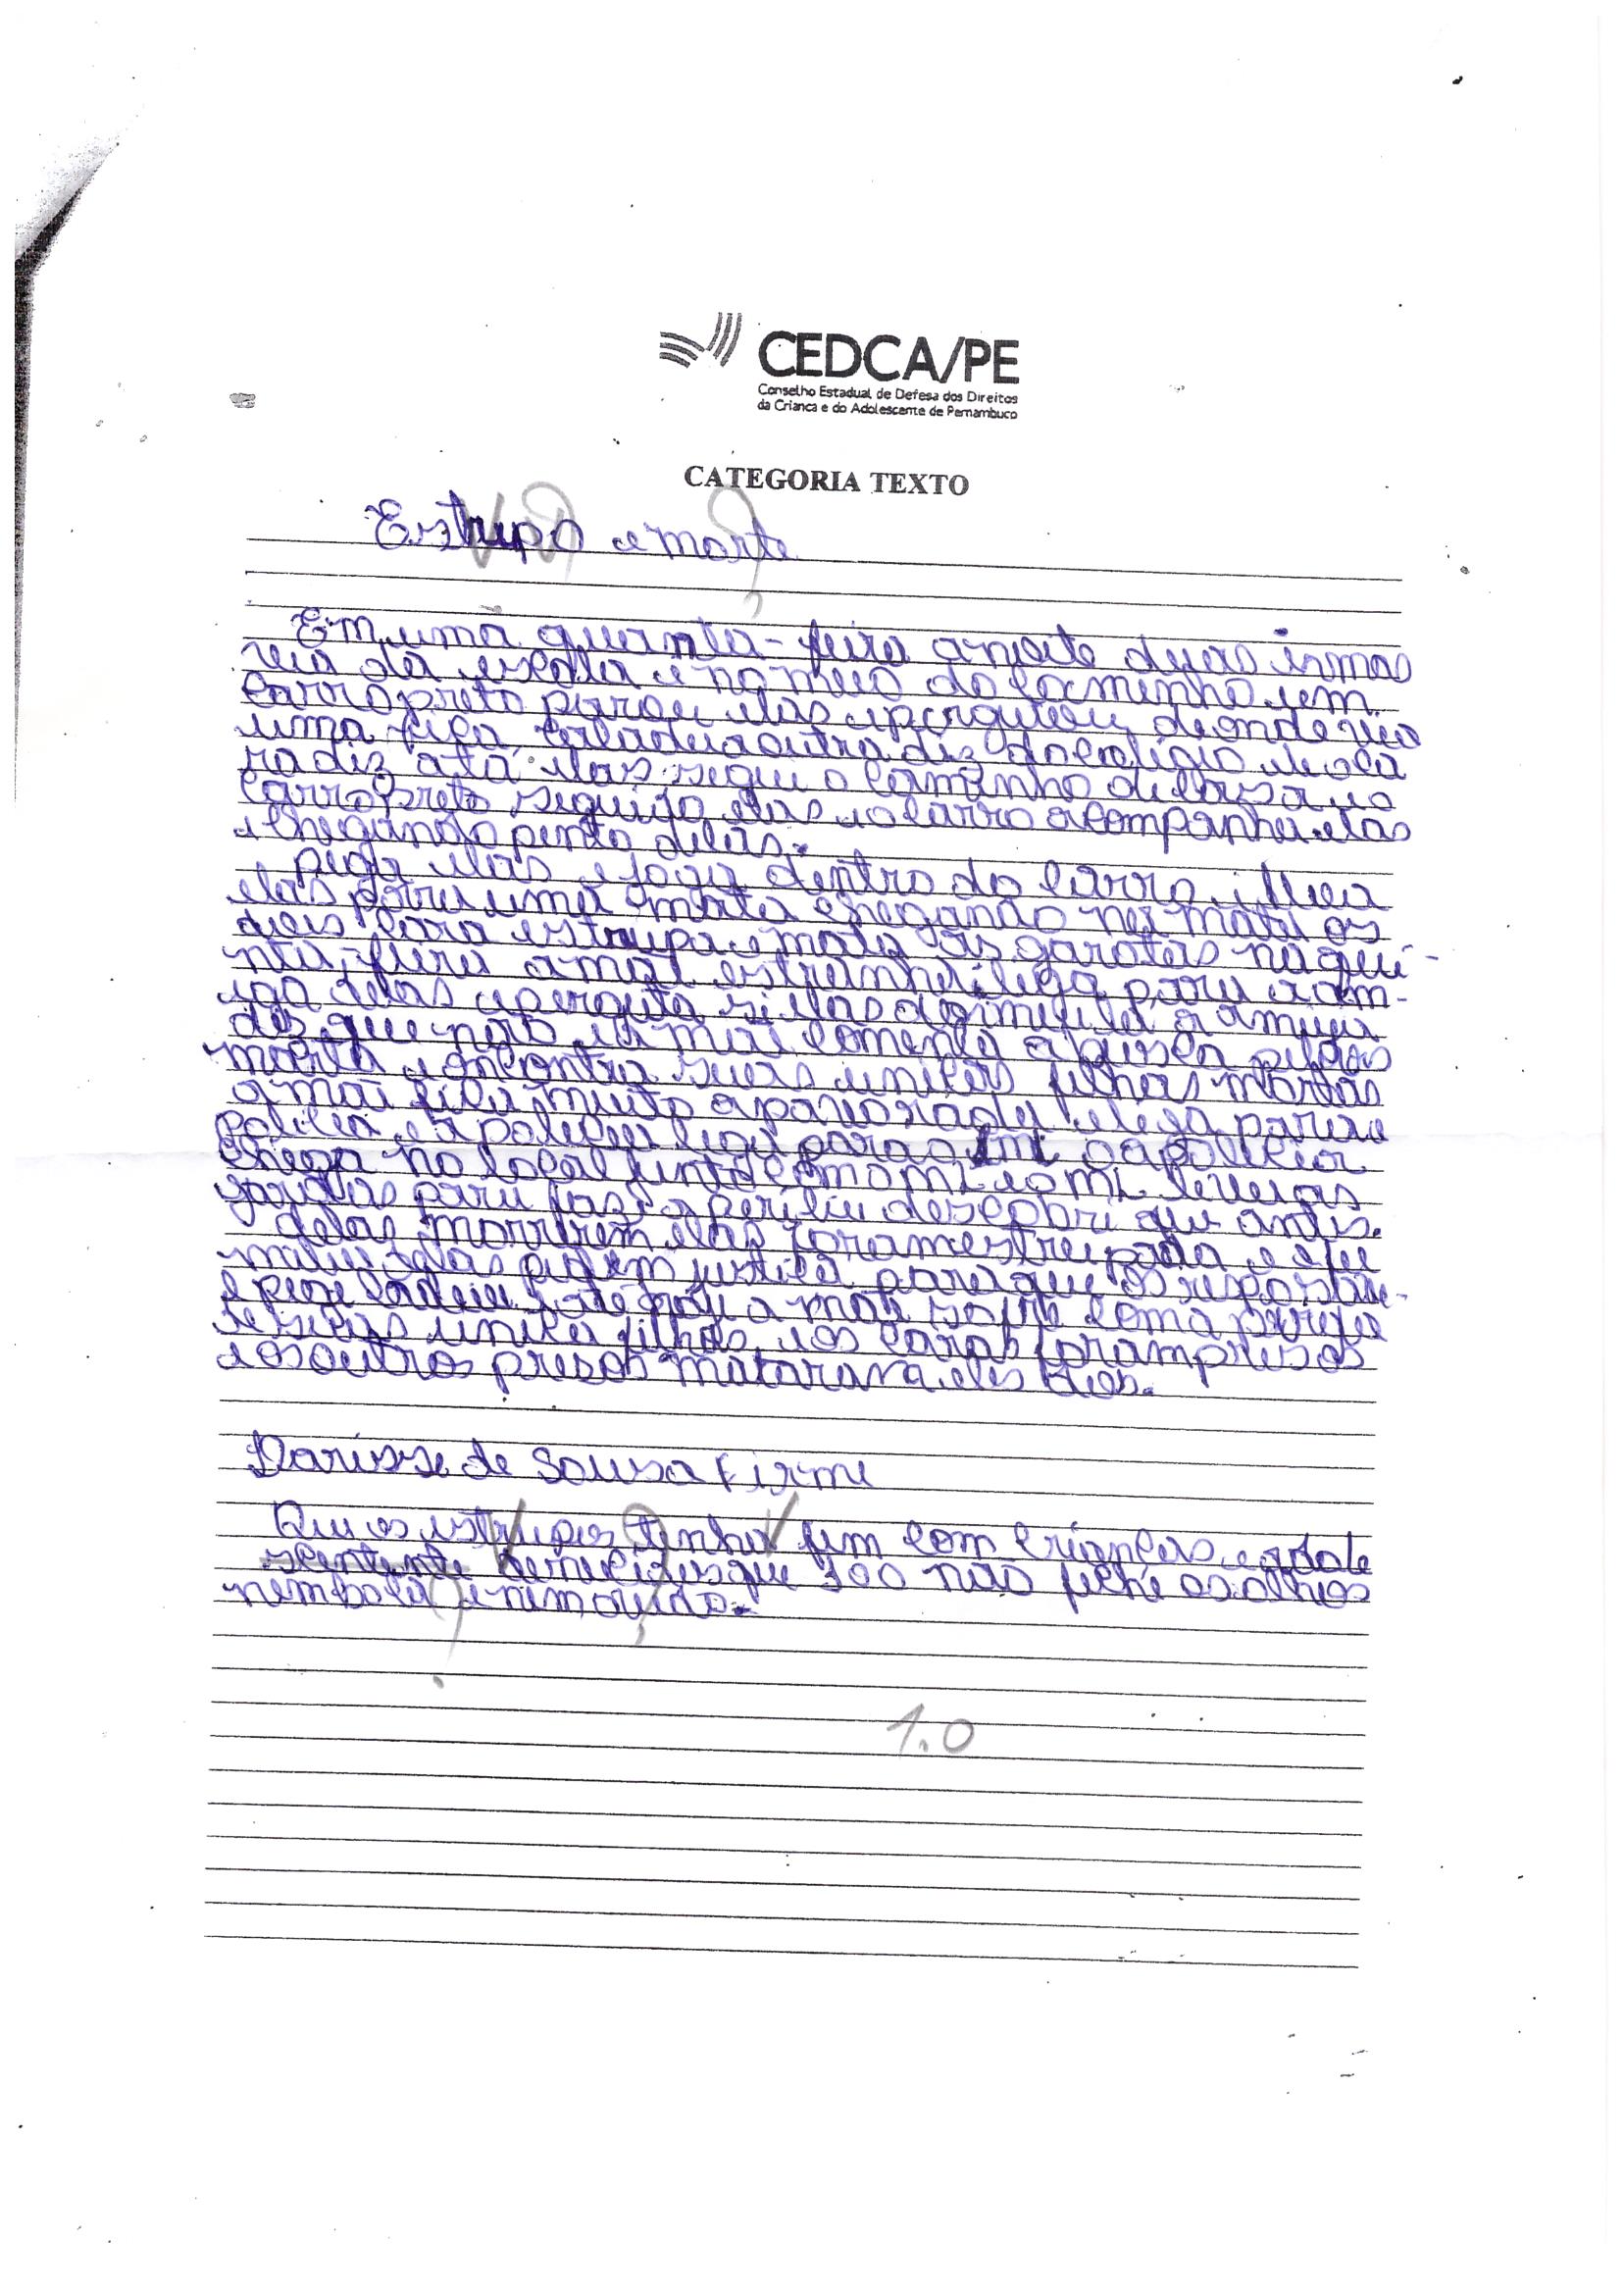 CEDCA/PE
Conselho Estadual de Defesa dos Direitos
da Criança e do Adolescente de Pernambuco
CATEGORIA TEXTO
Estrupo e morte
Em uma quanta-feira anoite duas irmas
veia da escola e no meio do caminho um
carro preto parou elas e perguteu de onde veio
uma fica calada a outra diz do colégio ele o ca
ra diz ata elas segue o caminho de casa e o
carro preto seguido elas e o carro acompanha elas
e chegando perto delas.
pega elas e joga dentro do carro i lleva
elas para uma mata chegando na mata os
dois cara estrupa e mata as garotas na qui-
nta-feira a mai estranha liga para a am-
iga delas e perguta si elas a amiga
diz que não ea mai comenta a busca pelas
mata e encontra suas unicas filhas mortas
a mai fica muito apavorada e liga para a
policia e a policia liga para o iml a policia
chega no local junto com o ml e o ml leva as
garotas para fazi a pericia descobri que antis
delas morrerem elas foram estrupada e
pedem justica para que os
e pegi cadeia até hoji a mai sofre com a
de suas unica filhas, e os caras foram presos
e os outros presos mataram eles dois.
Darisse de Sousa Firme
Qui os estrupos tenha fim com crianças e adole
scentente que 100 não feche os olhos
nem boca e nem ouvido.
1.0